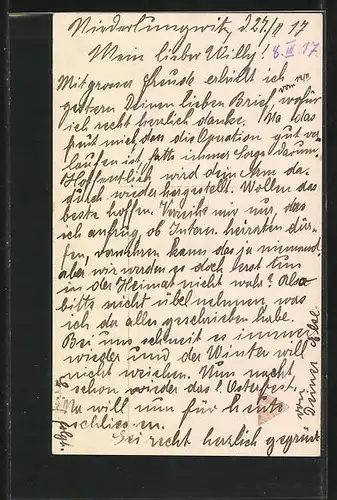 Niederlungwitz, d. 27/II 17
Mein lieber Willy! 8.III.17.
Mit grosser Freude erhielt ich
gestern Deinen lieben Brief, wofür
von
ich recht herzlich danke. Na das
freut mich, dass die Operation gut ver-
laufen ist, hatte immer Sorge darum.
Hoffentlich wird dein Arm da-
durch wieder hergestellt. Wollen das
beste hoffen. mir nur, das
ich anfrug, ob Intern. heiraten dür-
fen, verwehren kann das ja niemand
aber wir werden es doch erst tun
in der Heimat nicht wahr? Also
bitte nicht übel nehmen, was
ich da alles geschrieben habe.
Bei uns schneit es immer
wieder und der Winter will
nicht weichen. Nun naht
schon wieder das l. Osterfest.
Na will nun für heute
schliessen.
Sei recht herzlich gegrüsst
von Deiner Else.